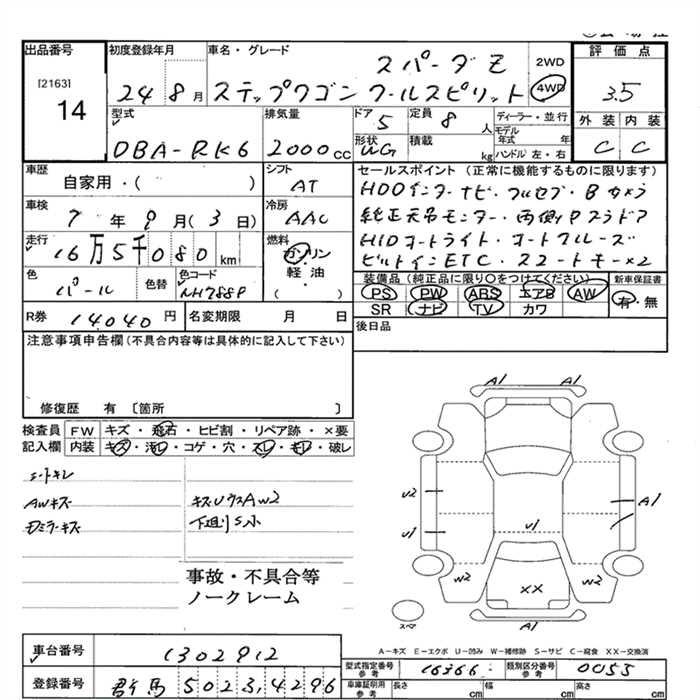 出品番号 初度登録年月 車名・グレード 2WD 評価点
[2163] スパーダZ
14 24 8月 ステップワゴン クールスピリット 4WD 3.5
型式 排気量 ドア 5 定員 8 人 ディーラー・並行 外装 内装
DBA-RK6 2000cc 形状 WG 積載 kg モデル年式 年 ハンドル 左・右 C C
車歴 シフト セールスポイント (正常に機能するものに限ります)
自家用・( ) AT HDDインターナビ・フルセグ・Bカメラ
車検 冷房 純正天吊モニター・両側Pスラドア
7年9月(3日) AAC HIDオートライト・オートクルーズ
走行 燃料 ビルトインETC・スマートキー×2
16万5千080km ガソリン
色 色替 色コード 軽油 装備品(純正品に限り○をつけてください) 新車保証書
パール NH788P ( ) PS PW ABS エアB AW 有・無
SR ナビ TV カワ
R券 14040円 名変期限 月 日 後日品
注意事項申告欄(不具合内容等は具体的に記入して下さい)
修復歴 有〔箇所 〕
検査員 FW キズ・飛石・ヒビ割・リペア跡・×要
記入欄 内装 キズ・汚レ・コゲ・穴・スレ・キレ・破レ
シートキレ
AWキズ キズUウスAW2
Dミラーキズ 下廻りS小
事故・不具合等
ノークレーム
A1 A1
U2 A1
U1 U1
W2 XX W2
スペア A1
A-キズ E-エクボ U-凹み W-補修跡 S-サビ C-腐食 XX-交換済
車台番号 1302912
型式指定番号 参考 16366 類別区分番号 参考 0055
登録番号 群馬 502 3 4296
車庫証明用 参考 長さ cm 幅 cm 高さ cm